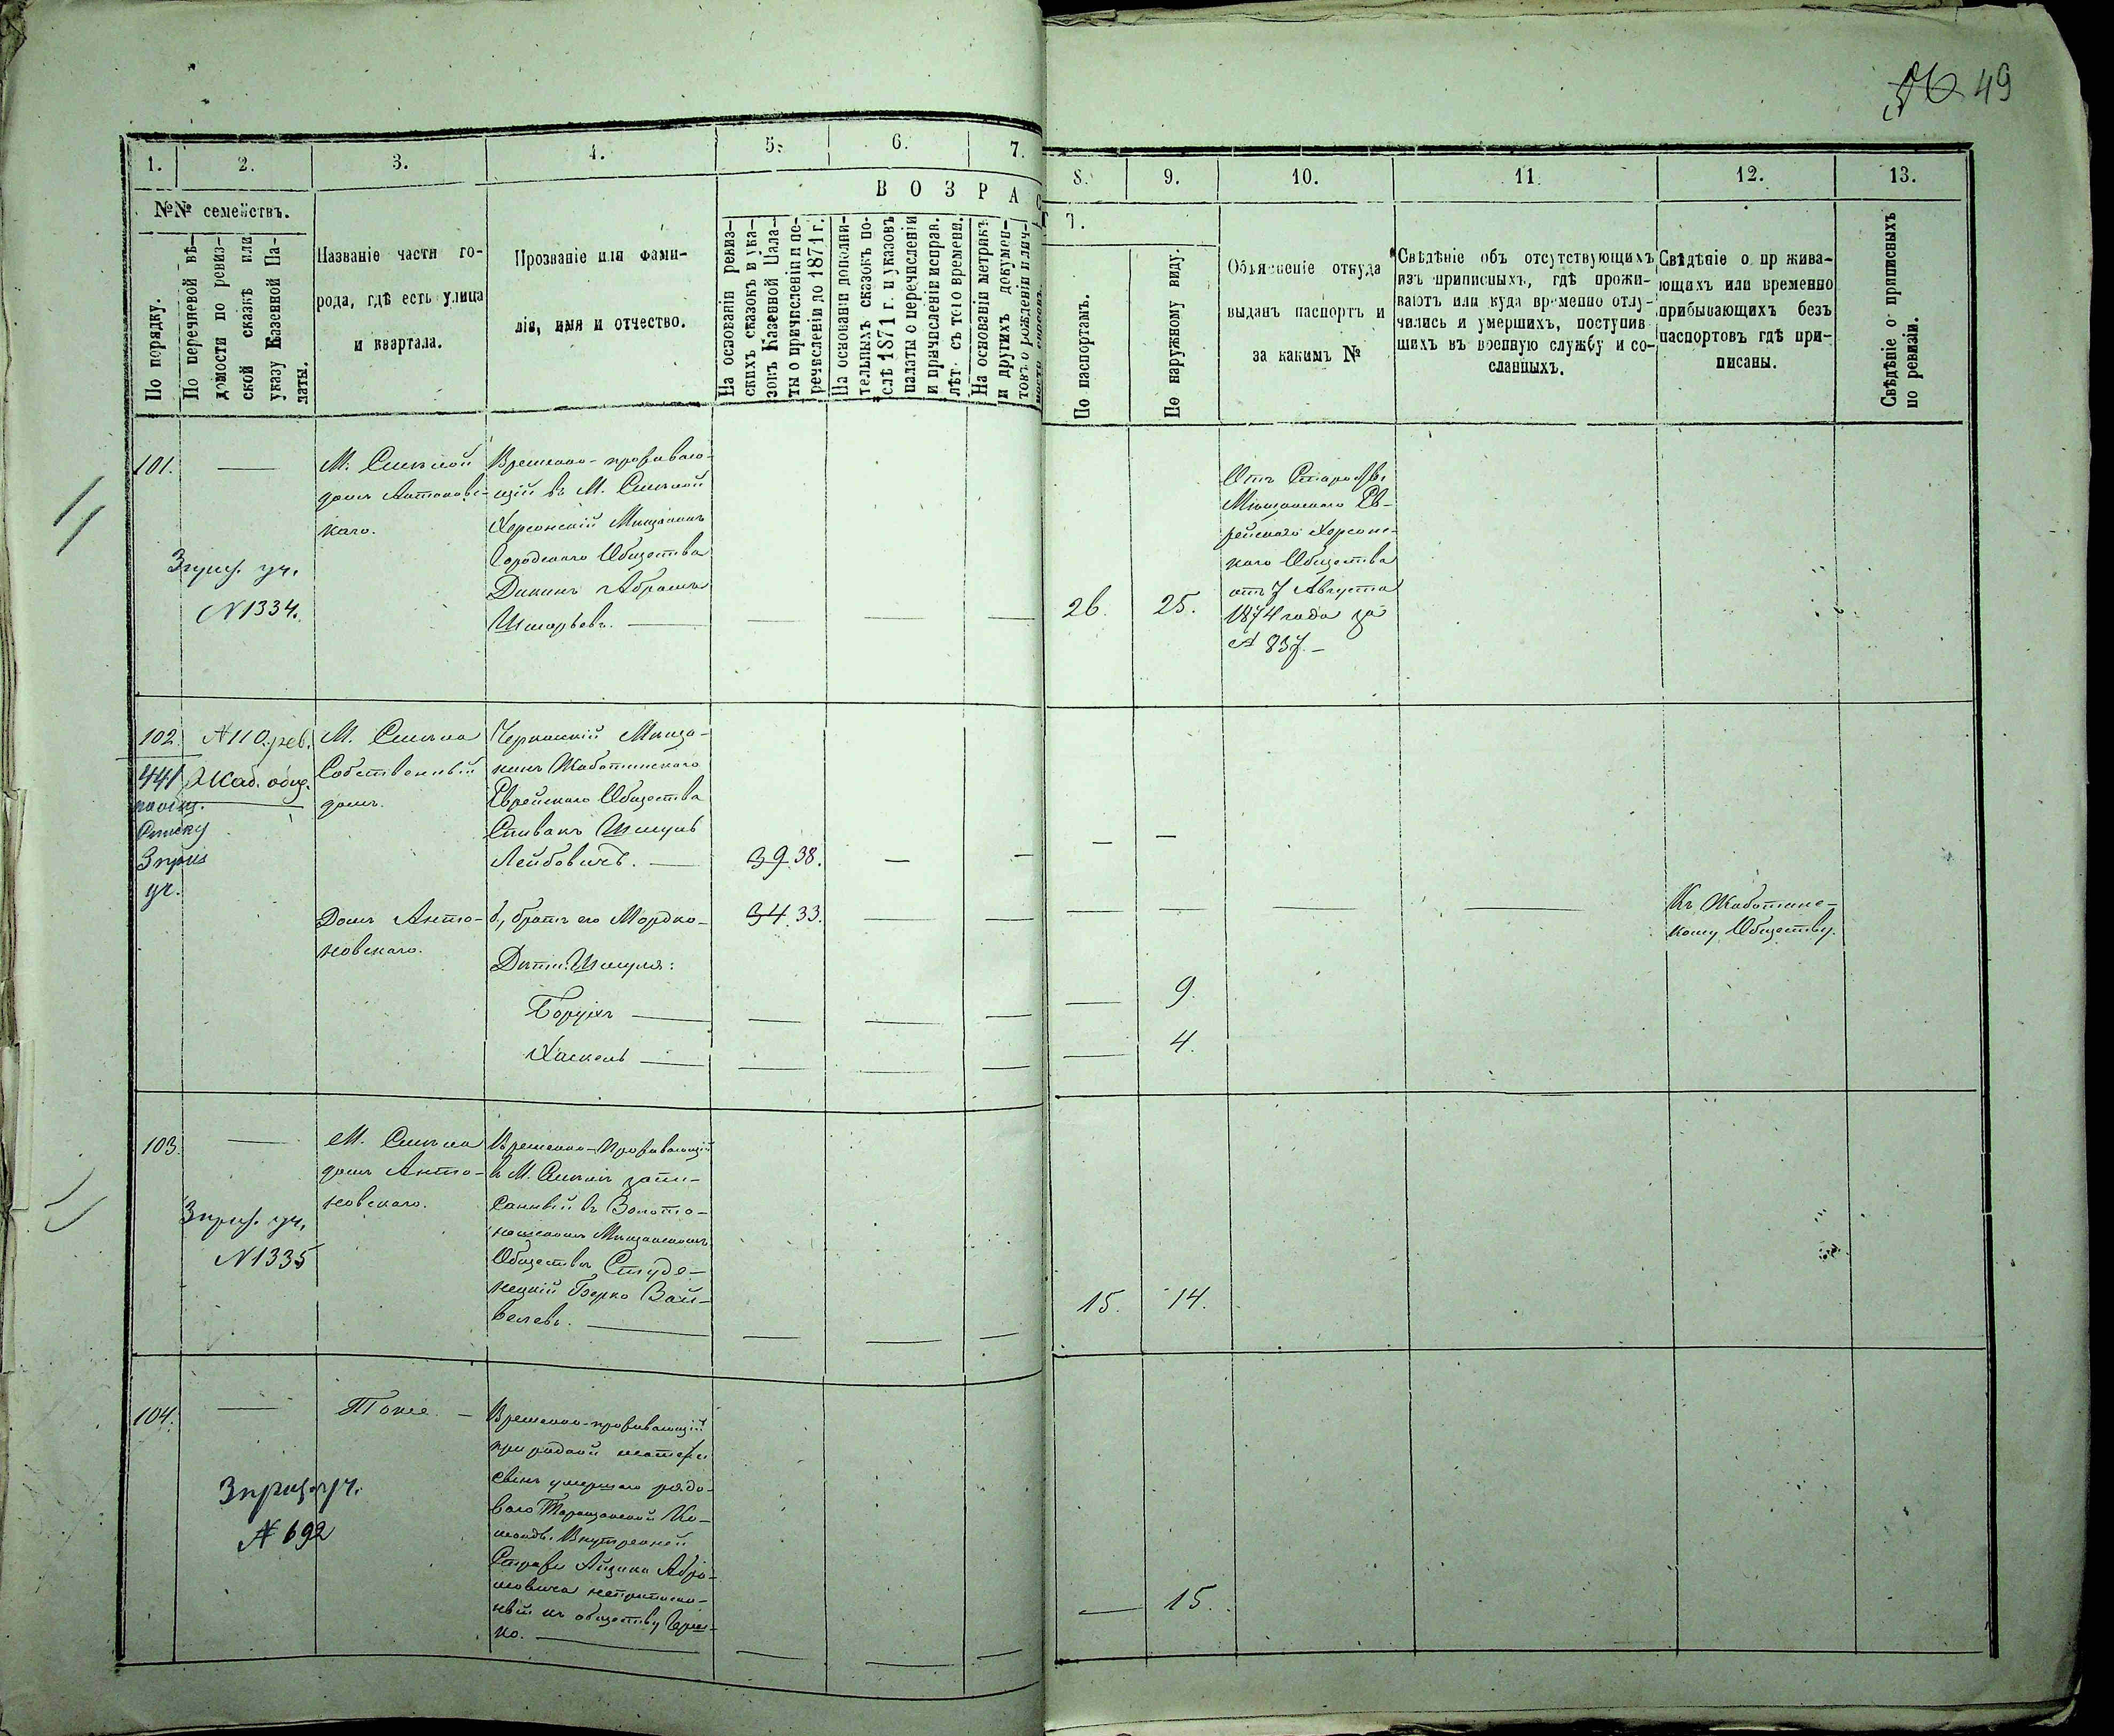 49
1.
2.
3.
4.
5.
6.
7.
8.
9.
10.
11.
12.
13.
№№ семействъ.
По порядку.
По перечневой вѣ-
домости по ревиз-
ской сказкѣ или
указу Казенной Па-
латы.
Названіе части го-
рода, гдѣ есть улица
и квартала.
Прозваніе или фами-
лія, имя и отчество.
ВОЗРАСТ
Ъ.
На основаніи ревиз-
скихъ сказокъ и ука-
зовъ Казенной Пала-
ты о причисленіи и пе-
речисленіи до 1871 г.
На основаніи дополни-
тельныхъ сказокъ по-
слѣ 1871 г. и указовъ
палаты о перечисленіи
и причисленіи исправ.
лѣт. съ того времени.
На основаніи метрикъ
и другихъ докумен-
товъ о рожденіи и лич-
По паспортамъ.
По наружному виду.
Объясненіе откуда
выданъ паспортъ и
за какимъ №
Свѣдѣніе объ отсутствующихъ
изъ приписныхъ, гдѣ прожи-
ваютъ или куда временно отлу-
чились и умершихъ, поступив
шихъ въ военную службу и со-
сланныхъ.
Свѣдѣніе о пр жива-
ющихъ или временно
прибывающихъ безъ
паспортовъ гдѣ при-
писаны.
Свѣдѣніе о приписныхъ
по ревизіи.
101.
—
М. Смѣлой
домъ Антоновс-
каго.
3 приз. уч.
№ 1334.
Временно-прожываю-
щій въ М. Смѣлой
Херсонскій Мѣщанинъ
Городскаго Общества
Дикинъ Абрамъ
26.
25.
Отъ Старосты
Мѣщанскаго Ев-
рейскаго Херсонс-
каго Общества
отъ 7 Августа
1874 года за
№ 837.-
102.
№ 110 рев.
Жаб. общ.
441
по общ.
Списку
3 приз
уч.
М. Смѣла
Собственный
домъ.
Черкаскій Мѣща-
нинъ Жаботинскаго
Еврейскаго Общества
Спивакъ Шмуль
Лейбовичъ. —
39 38.
Домъ Анто-
новскаго.
б, братъ его Мордко-
34 33.
Къ Жаботинс-
кому Обществу.
Дѣти Шмуля:
Борухъ —
9.
Хаскель —
4.
103.
—
М. Смѣла
домъ Анто-
новскаго.
3 приз. уч.
№ 1335
Временно-Прожывающій
въ М. Смѣлѣ запи-
санный въ Золото-
ношскомъ Мѣщанскомъ
Обществѣ Студе-
нецкій Берко Вай-
велевъ. —
15.
14.
104.
—
Тоже. —
3 приз. уч.
№ 692
Временно-прожывающій
при родной матери
сынъ умершаго рядо-
ваго Таращанской Ко-
манды Внутренней
Стражи Айзика Абра-
мовича неприписан-
ный къ обществу Герш-
ко. —
15.